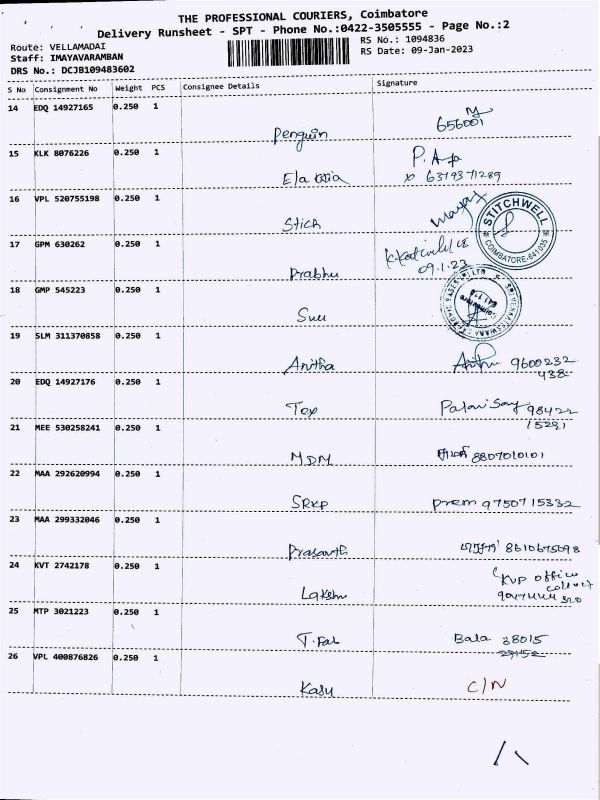 THE PROFESSIONAL COURIERS, Coimbatore
Delivery Runsheet - SPT - Phone No.:0422-3505555 - Page No.:2
Route: VELLAMADAI
RS No.: 1094836
Staff: IMAYAVARAMBAN
RS Date: 09-Jan-2023
DRS No.: DCJB109483602
S No Consignment No Weight PCS Consignee Details Signature
14 EDQ 14927165 0.250 1
Penguin 656001
15 KLK 8076226 0.250 1
P.A
6379371289
16 VPL 520755198 0.250 1
Stich
STITCHWELL
COIMBATORE-641035
17 GPM 630262 0.250 1
Prabhu 09.1.23
18 GMP 545223 0.250 1
19 SLM 311370858 0.250 1
Anitha 9600232
438
20 EDQ 14927176 0.250 1
Tex 98422
15291
21 MEE 530258241 0.250 1
MDM 8807010101
22 MAA 292620994 0.250 1
SRKP Prem 9750715332
23 MAA 299332046 0.250 1
Prasanth 8610675098
24 KVT 2742178 0.250 1
KVP office
Lakshmi
25 MTP 3021223 0.250 1
T.Pal Bala 38015
29152
26 VPL 400876826 0.250 1
Kasu C/N